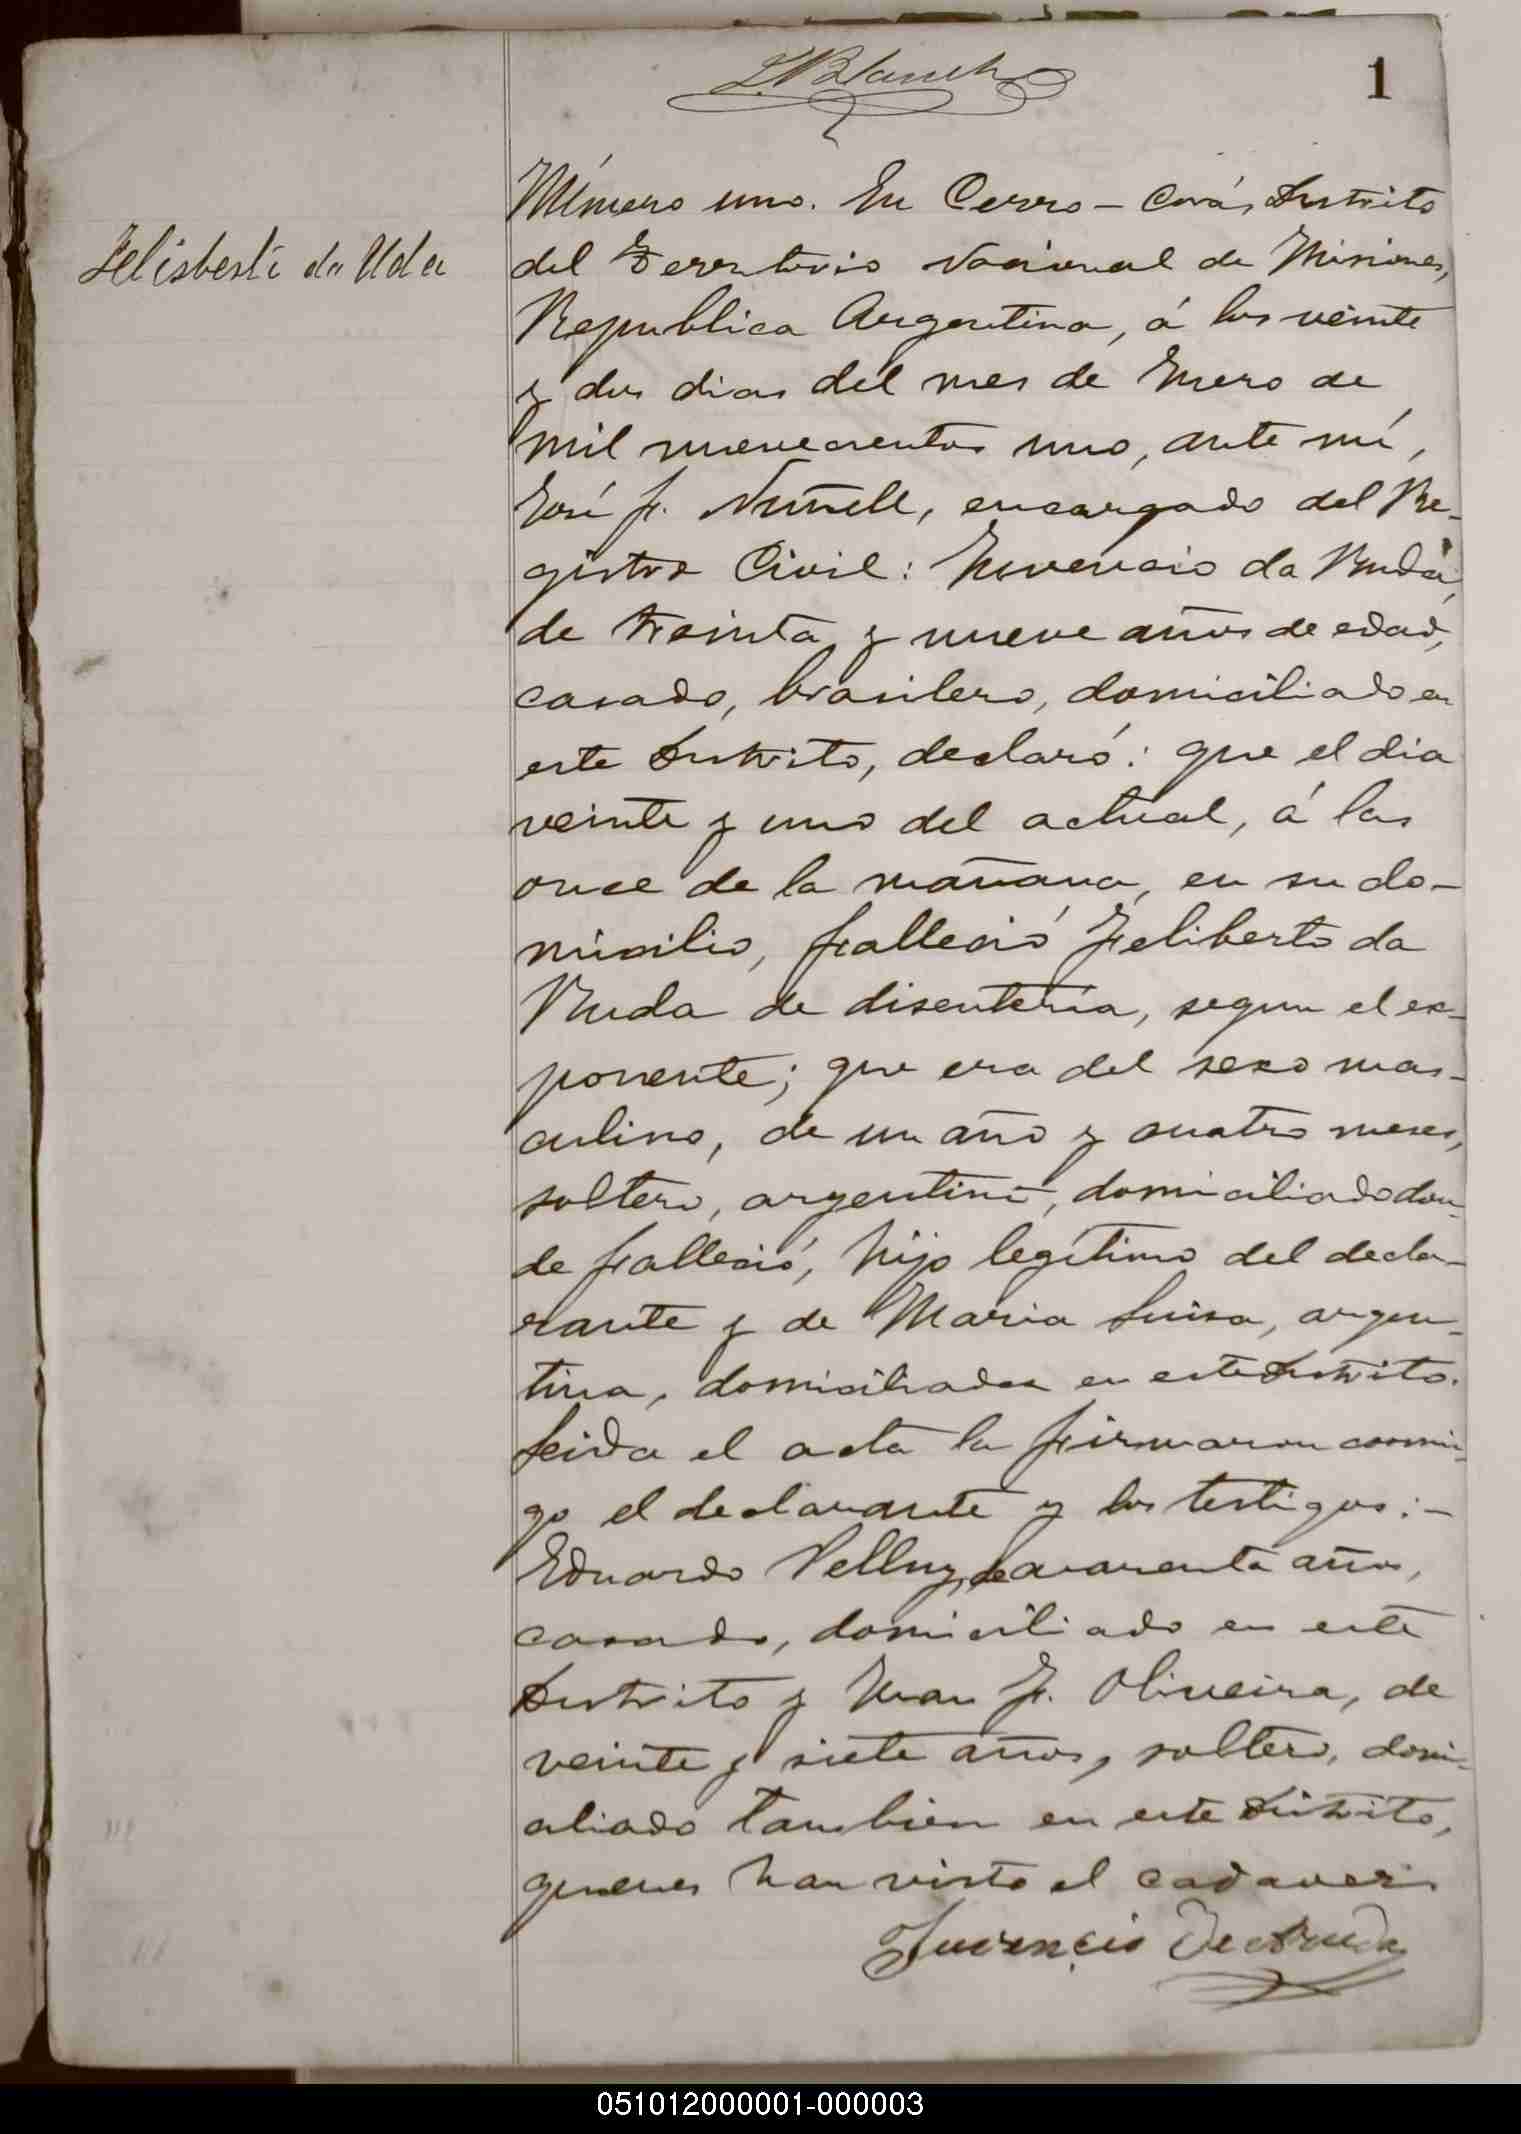 L. Blanch
1
Número uno. En Cerro-Corá, Distrito
Felisberti da Uda
del Territorio Nacional de Misiones,
Republica Argentina, á los veinte
y dos dias del mes de Enero de
mil novecientos uno, ante mí,
José F. Nuñell, encargado del Re-
gistro Civil: Juvencio da Ruda,
de treinta y nueve años de edad,
casado, brasilero, domiciliado en
este Distrito, declaró: que el dia
veinte y uno del actual, á las
once de la mañana, en su do-
micilio, falleció Feliberto da
Ruda de disentería, segun el ex-
ponente; que era del sexo mas-
culino, de un año y cuatro meses,
soltero, argentino, domiciliado don-
de falleció, hijo legítimo del decla-
rante y de Maria Luisa, argen-
tina, domiciliada en este Distrito.
Leida el acta la firmaron conmi-
go el declarante y los testigos:-
Eduardo Velluy, de cuarenta años,
casado, domiciliado en este
Distrito y Juan F. Oliveira, de
veinte y siete años, soltero, domi-
ciliado tambien en este Distrito,
quienes han visto el cadaver.
Juvencio De Aruda
051012000001-000003